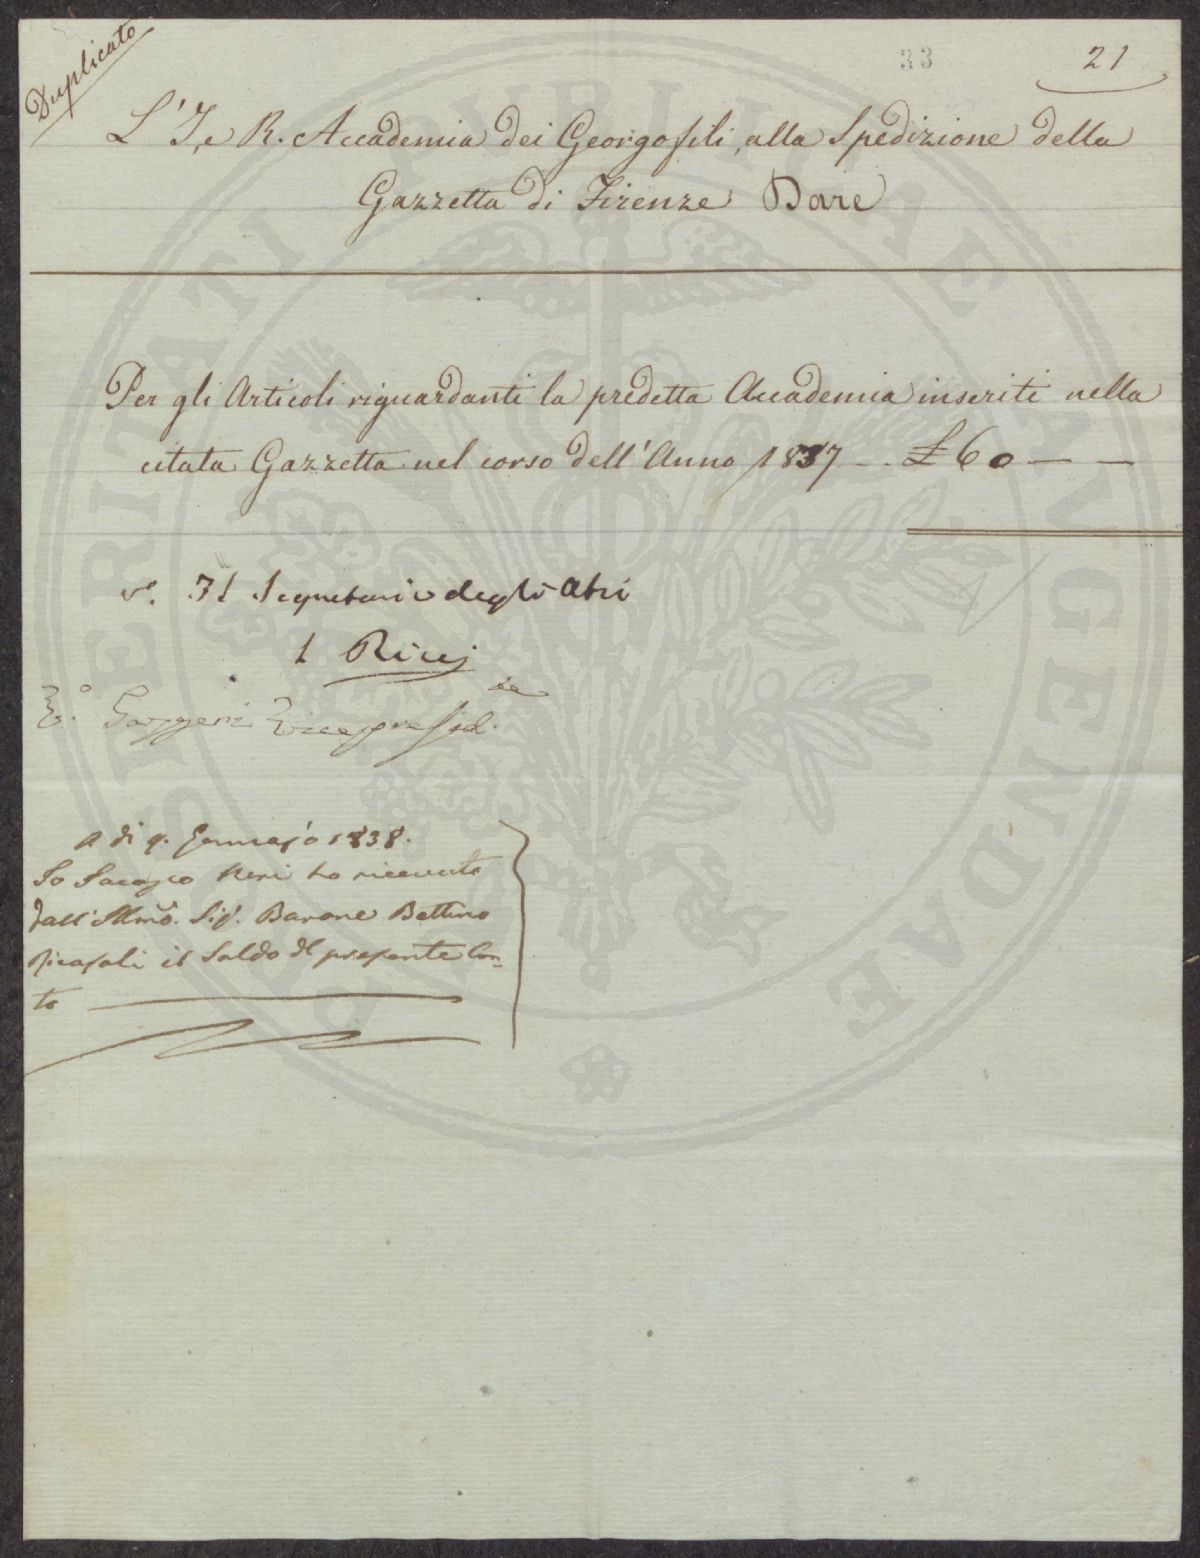 Duplicato
33
21
L'I. e R. Accademia dei Georgofili, alla Spedizione della
Gazzetta di Firenze Dare
Per gli Articoli riguardanti la predetta Accademia inseriti nella
citata Gazzetta nel corso dell'Anno 1837 - - £ 60 — —
V°. Il Segretario degli Atti
L Ricci
V°. Gazzeri Vicepresid.te
A di 9. Gennajo 1838.
Io Jacopo Neri ho ricevuto
dall'Illmo. Sig. Barone Bettino
Ricasoli il Saldo del presente Con-
to
PROSPERITATI PUBLICAE AUGENDAE